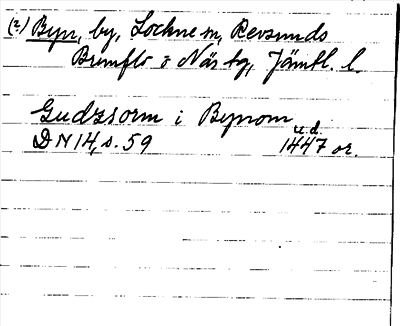 (2) Byn, by, Lockne sn, Revsunds
Brunflo o Näs tg, Jämtl. l.
Gudzsorm i Bynom
u.d.
DN 14, s. 59 1447 or.